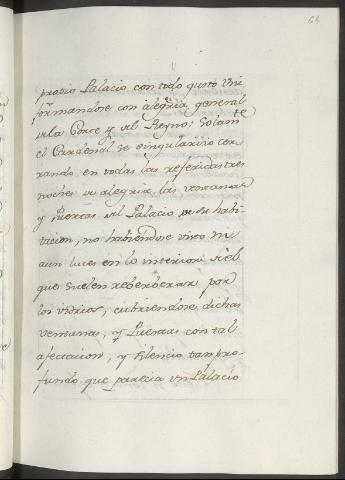 64
propio Palacio con todo gusto Uni
formandose con alegria general
dela Corte y del Reyno; Solamte
el Cardenal se singularizò cer
rando en todas las referidas tres
noches de alegria las ventanas
y Puertas del Palacio de su habi-
tacion, no habiendose visto ni
aun luces en lo interior del
que suelen reberberar por
los vidrios, cubriendose dichas
ventanas, y Puertas con tal
afectacion, y silencio tan pro-
fundo que parecia un Palacio